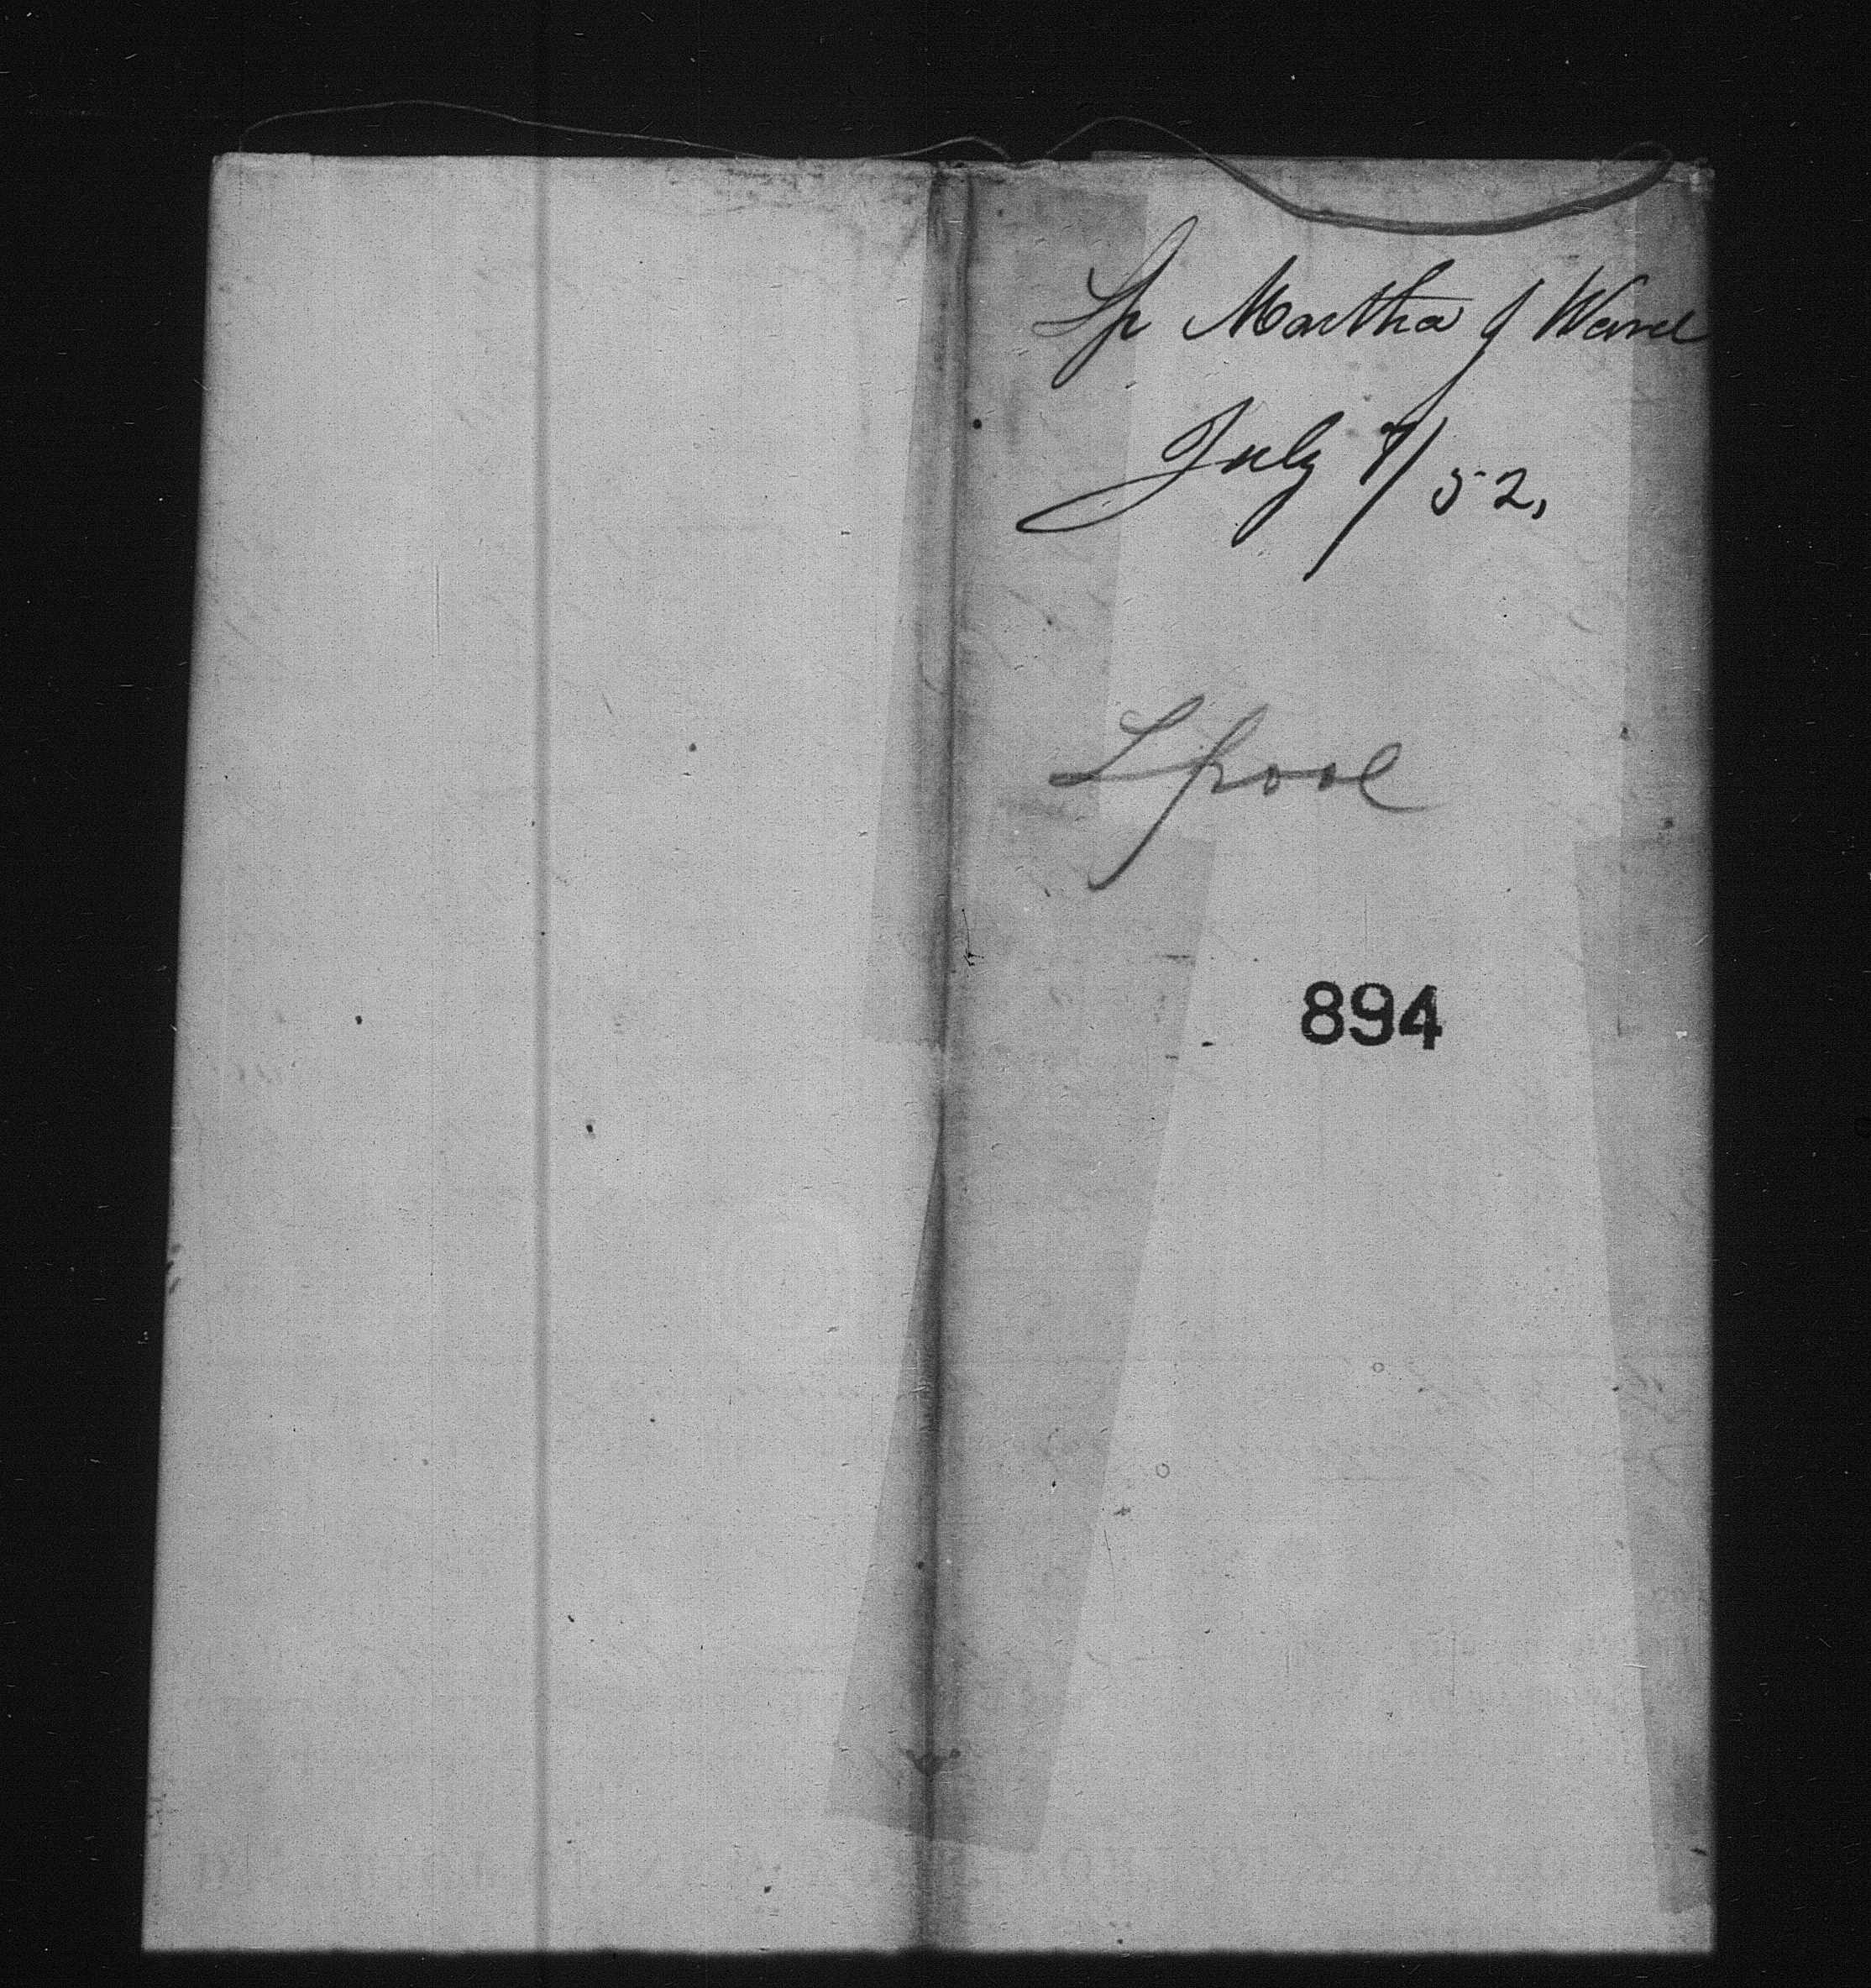 Sp Martha J Ward
July 7/52,
Lpool
894